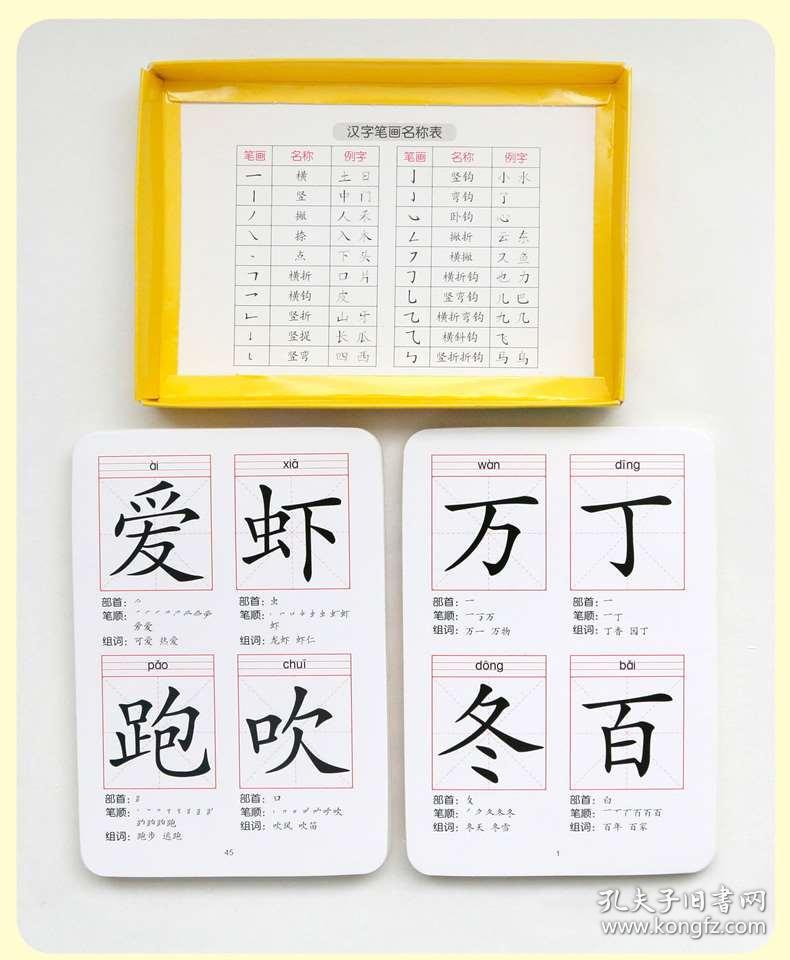 汉字笔画名称表
笔画 名称 例字
一 横 土 日
丨 竖 中 门
丿 撇 人 禾
㇏ 捺 入 木
丶 点 下 头
𠃍 横折 口 片
乛 横钩 皮
𠃊 竖折 山 牙
竖提 长 瓜
竖弯 四 西
笔画 名称 例字
亅 竖钩 小 水
弯钩 了
卧钩 心
𠃋 撇折 云 东
㇇ 横撇 又 鱼
𠃌 横折钩 也 力
乚 竖弯钩 儿 巴
横折弯钩 九 几
⺄ 横斜钩 飞
㇉ 竖折折钩 马 鸟
ài
爱
部首: 爫
笔顺:
旁爱
组词: 可爱 热爱
xiā
虾
部首: 虫
笔顺:
虾
组词: 龙虾 虾仁
pǎo
跑
部首:
笔顺:
组词: 跑步 逃跑
chuī
吹
部首: 口
笔顺:
组词: 吹风 吹笛
45
wàn
万
部首: 一
笔顺: 一丁万
组词: 万一 万物
dīng
丁
部首: 一
笔顺: 一丁
组词: 丁香 园丁
dōng
冬
部首: 夂
笔顺: 丿ク夂冬冬
组词: 冬天 冬雪
bǎi
百
部首: 白
笔顺:
组词: 百年 百家
1
孔夫子旧书网
www.kongfz.com